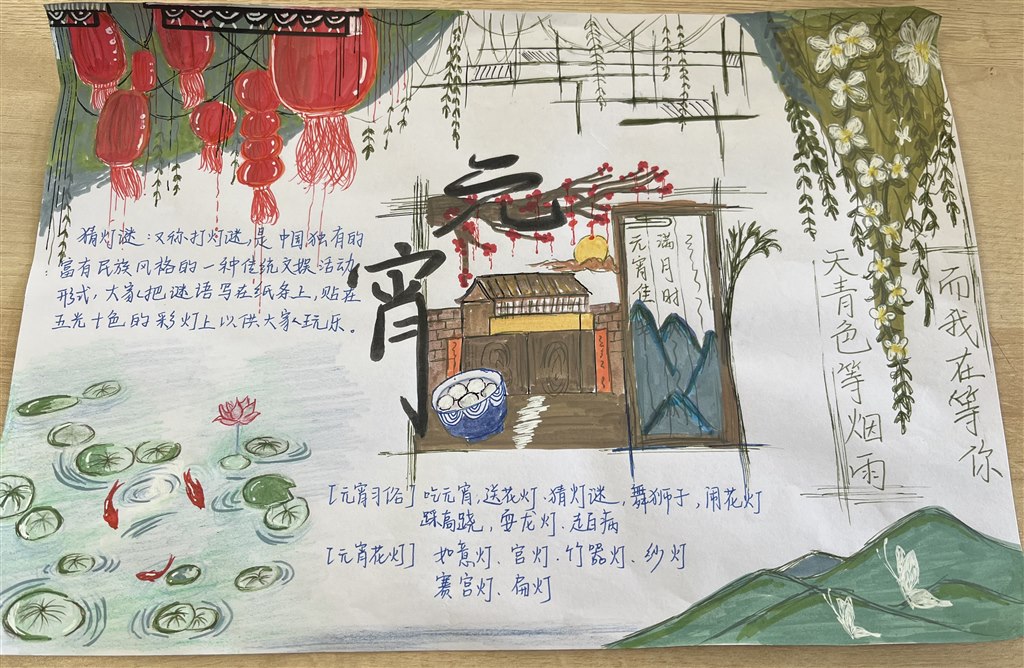 元宵
猜灯谜:又称打灯谜,是中国独有的
富有民族风格的一种传统文娱活动
形式,大家把谜语写在纸条上,贴在
五光十色的彩灯上以供大家玩乐。
满月时
元宵佳
天青色等烟雨
而我在等你
[元宵习俗] 吃元宵,送花灯、猜灯谜,舞狮子,闹花灯
踩高跷,耍龙灯、走百病
[元宵花灯] 如意灯、宫灯、竹器灯、纱灯
赛宫灯、扁灯